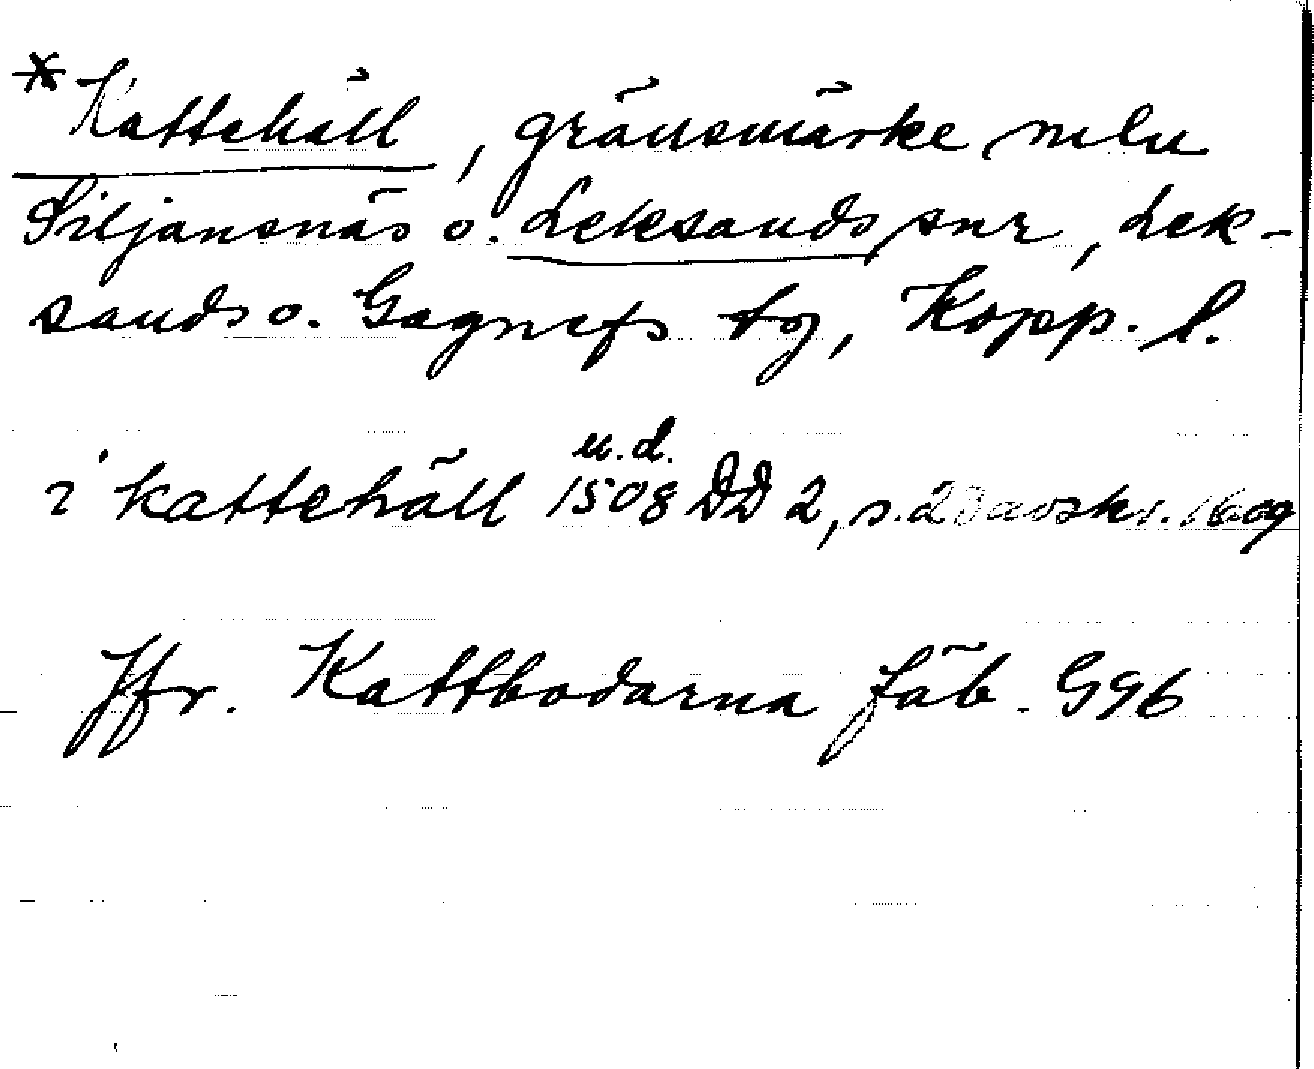 *Kattehäll, gränsmärke mlu
Siljansnäs o. Leksands snr, Lek-
sands o. Gagnefs tg, Kopp. l.
u.d.
i kattehäll 1508 DD 2, s. avskr. 1609
Jfr. Kattbodarna fäb. G96